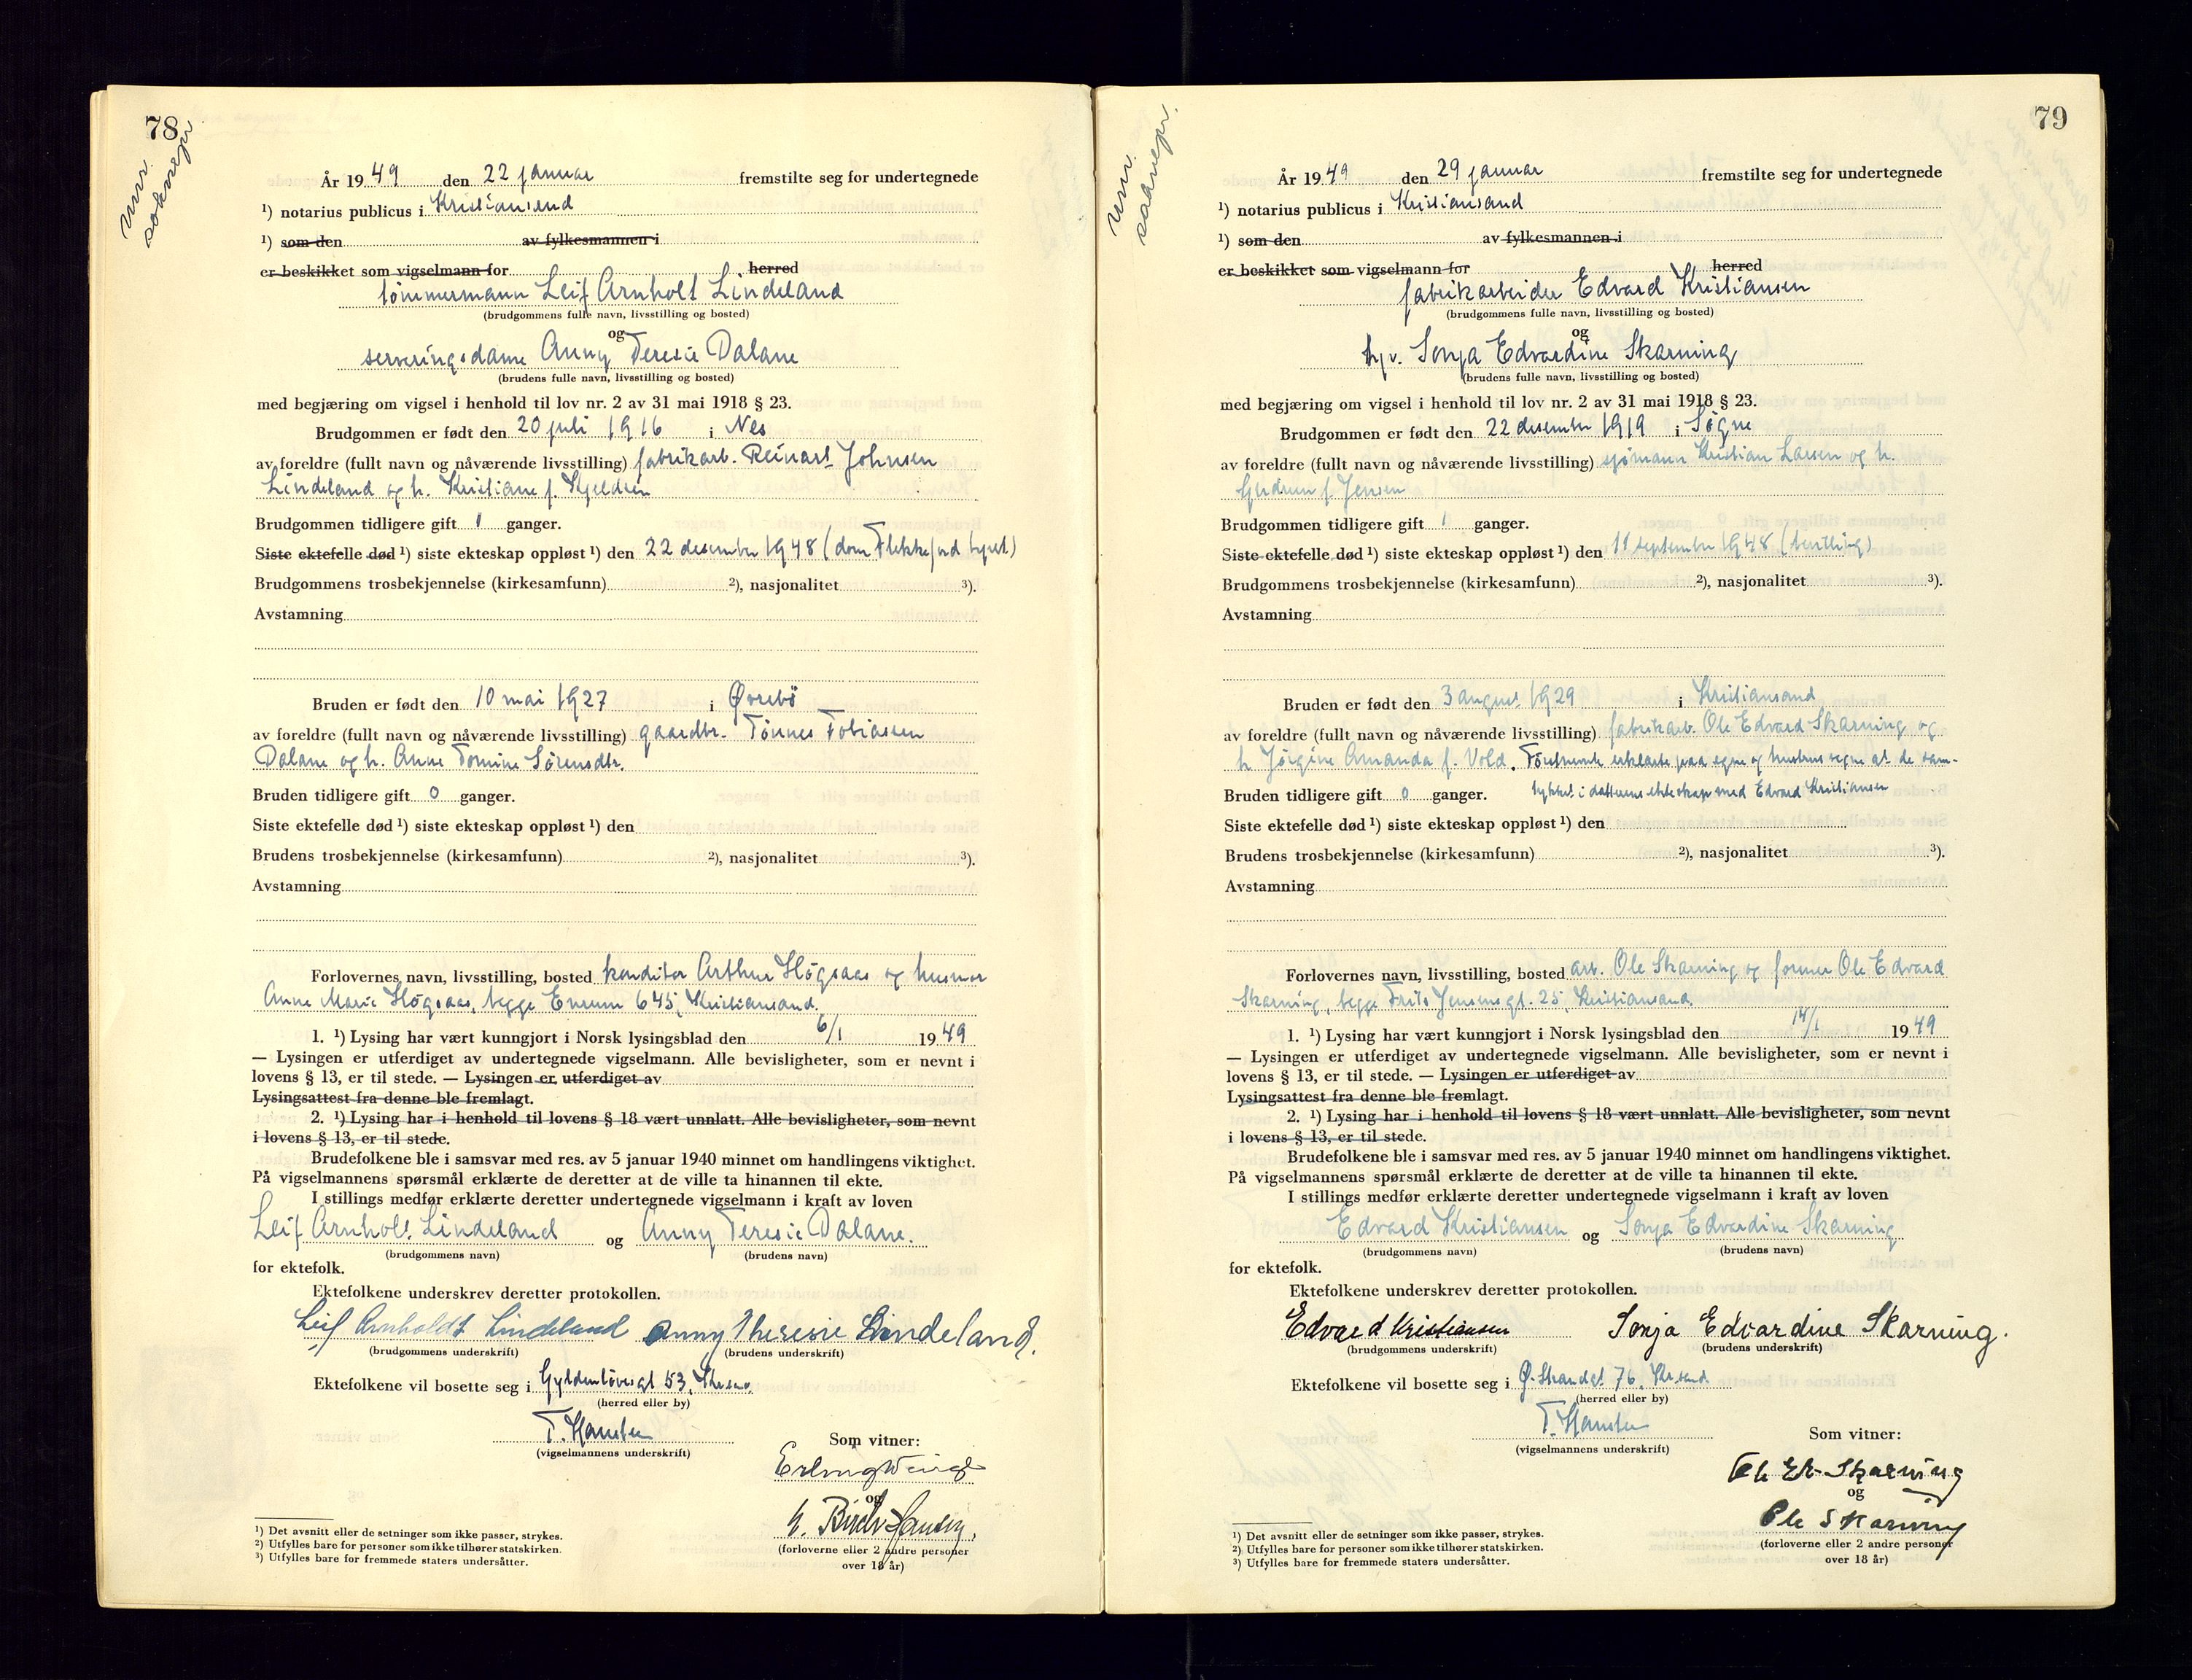 78
År 1949 den 22 januar fremstilte seg for undertegnede
¹) notarius publicus i Kristiansand
¹) som den av fylkesmannen i
er beskikket som vigselmann for herred
tömmermann Leif Arnholt Lindeland
(brudgommens fulle navn, livsstilling og bosted)
og
serveringsdame Anny Teresie Dalane
(brudens fulle navn, livsstilling og bosted)
med begjæring om vigsel i henhold til lov nr. 2 av 31 mai 1918 § 23.
Brudgommen er født den 20 juli 1916 i Nes
av foreldre (fullt navn og nåværende livsstilling) fabrikarb. Reinart Johnsen
Lindeland og h. Kristiane f. Kjeldsen
Brudgommen tidligere gift 1 ganger.
Siste ektefelle død ¹) siste ekteskap oppløst ¹) den 22 desember 1948 (dom Flekkefjord byret)
Brudgommens trosbekjennelse (kirkesamfunn) ²), nasjonalitet ³).
Avstamning
Bruden er født den 10 mai 1927 i Øvrebö
av foreldre (fullt navn og nåværende livsstilling) gaardbr. Tönnes Tobiassen
Dalane og h. Anne Tomine Sörensdtr.
Bruden tidligere gift 0 ganger.
Siste ektefelle død ¹) siste ekteskap oppløst ¹) den
Brudens trosbekjennelse (kirkesamfunn) ²), nasjonalitet ³).
Avstamning
Forlovernes navn, livsstilling, bosted konditor Arthur Högsaas og husmor
Anne Marie Högsaas, begge Enrum 645, Kristiansand.
1. ¹) Lysing har vært kunngjort i Norsk lysingsblad den 6/1 1949
— Lysingen er utferdiget av undertegnede vigselmann. Alle bevisligheter, som er nevnt i
lovens § 13, er til stede. — Lysingen er utferdiget av
Lysingsattest fra denne ble fremlagt.
2. ¹) Lysing har i henhold til lovens § 18 vært unnlatt. Alle bevisligheter, som nevnt
i lovens § 13, er til stede.
Brudefolkene ble i samsvar med res. av 5 januar 1940 minnet om handlingens viktighet.
På vigselmannens spørsmål erklærte de deretter at de ville ta hinannen til ekte.
I stillings medfør erklærte deretter undertegnede vigselmann i kraft av loven
Leif Arnholt Lindeland og Anny Teresie Dalane.
(brudgommens navn) (brudens navn)
for ektefolk.
Ektefolkene underskrev deretter protokollen.
Leif Arnholdt Lindeland Anny Theresie Lindeland.
(brudgommens underskrift) (brudens underskrift)
Ektefolkene vil bosette seg i Gyldenlövesgt 53,
(herred eller by)
T. Hansen
(vigselmannens underskrift)
Som vitner:
Erling
og
(forloverne eller 2 andre personer
over 18 år)
¹) Det avsnitt eller de setninger som ikke passer, strykes.
²) Utfylles bare for personer som ikke tilhører statskirken.
³) Utfylles bare for fremmede staters undersåtter.
79
År 1949 den 29 januar fremstilte seg for undertegnede
¹) notarius publicus i Kristiansand
¹) som den av fylkesmannen i
er beskikket som vigselmann for herred
fabrikarbeider Edvard Kristiansen
(brudgommens fulle navn, livsstilling og bosted)
og
Sonja Edvardine Skarning
(brudens fulle navn, livsstilling og bosted)
med begjæring om vigsel i henhold til lov nr. 2 av 31 mai 1918 § 23.
Brudgommen er født den 22 desember 1919 i Sögne
av foreldre (fullt navn og nåværende livsstilling) sjömann Kristian Larsen og h.
Gudrun f. Jensen
Brudgommen tidligere gift 1 ganger.
Siste ektefelle død ¹) siste ekteskap oppløst ¹) den 11 september 1948 (bevilling)
Brudgommens trosbekjennelse (kirkesamfunn) ²), nasjonalitet ³).
Avstamning
Bruden er født den 3 august 1929 i Kristiansand
av foreldre (fullt navn og nåværende livsstilling) fabrikarb. Ole Edvard Skarning og
h Jörgine Amanda f. Vold. erklærte paa egne og hustrus vegne at de sam-
Bruden tidligere gift 0 ganger. tykket i datterens ekteskap med Edvard Kristiansen
Siste ektefelle død ¹) siste ekteskap oppløst ¹) den
Brudens trosbekjennelse (kirkesamfunn) ²), nasjonalitet ³).
Avstamning
Forlovernes navn, livsstilling, bosted arb. Ole Skarning og former Ole Edvard
Skarning, begge Frits Jensens gt. 25, Kristiansand.
1. ¹) Lysing har vært kunngjort i Norsk lysingsblad den 14/1 1949
— Lysingen er utferdiget av undertegnede vigselmann. Alle bevisligheter, som er nevnt i
lovens § 13, er til stede. — Lysingen er utferdiget av
Lysingsattest fra denne ble fremlagt.
2. ¹) Lysing har i henhold til lovens § 18 vært unnlatt. Alle bevisligheter, som nevnt
i lovens § 13, er til stede.
Brudefolkene ble i samsvar med res. av 5 januar 1940 minnet om handlingens viktighet.
På vigselmannens spørsmål erklærte de deretter at de ville ta hinannen til ekte.
I stillings medfør erklærte deretter undertegnede vigselmann i kraft av loven
Edvard Kristiansen og Sonja Edvardine Skarning
(brudgommens navn) (brudens navn)
for ektefolk.
Ektefolkene underskrev deretter protokollen.
Edvard Kristiansen Sonja Edvardine Skarning.
(brudgommens underskrift) (brudens underskrift)
Ektefolkene vil bosette seg i Ø. Strandgt 76, Kr.sand
(herred eller by)
T. Hansen
(vigselmannens underskrift)
Som vitner:
Ole Ed. Skarning
og
Ole Skarning
(forloverne eller 2 andre personer
over 18 år)
¹) Det avsnitt eller de setninger som ikke passer, strykes.
²) Utfylles bare for personer som ikke tilhører statskirken.
³) Utfylles bare for fremmede staters undersåtter.